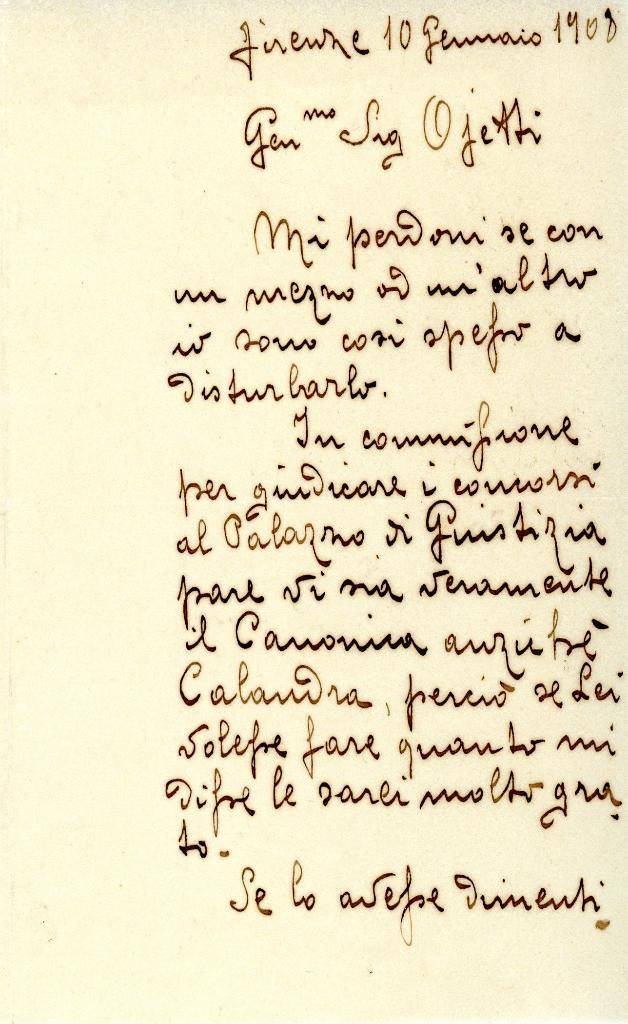 Firenze 10 Gennaio 1908
Gen.mo Sig Ojetti
Mi perdoni se con
un mezzo od un'altro
io sono così spesso a
disturbarlo.
In commissione
per giudicare i concorsi
al Palazzo di Giustizia
pare vi sia veramente
il Canonica anziché
Calandra, perciò se Lei
volesse fare quanto mi
disse le sarei molto gra-
to.
Se lo avesse dimenti-